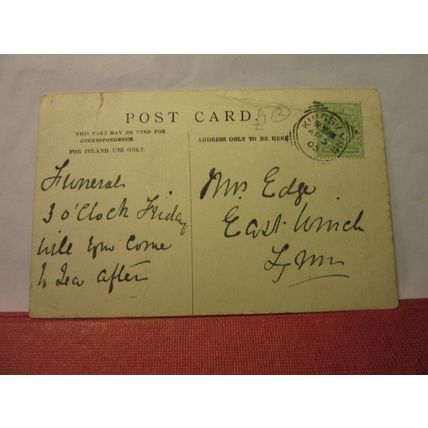 POST CARD.
THIS PART MAY BE USED FOR
CORRESPONDENCE.
FOR INLAND USE ONLY.
ADDRESS ONLY TO BE HERE
KING'S LYNN
Funeral
3 o'Clock Friday
will you come
to tea after
Mrs Edge
East Winch
Lynn